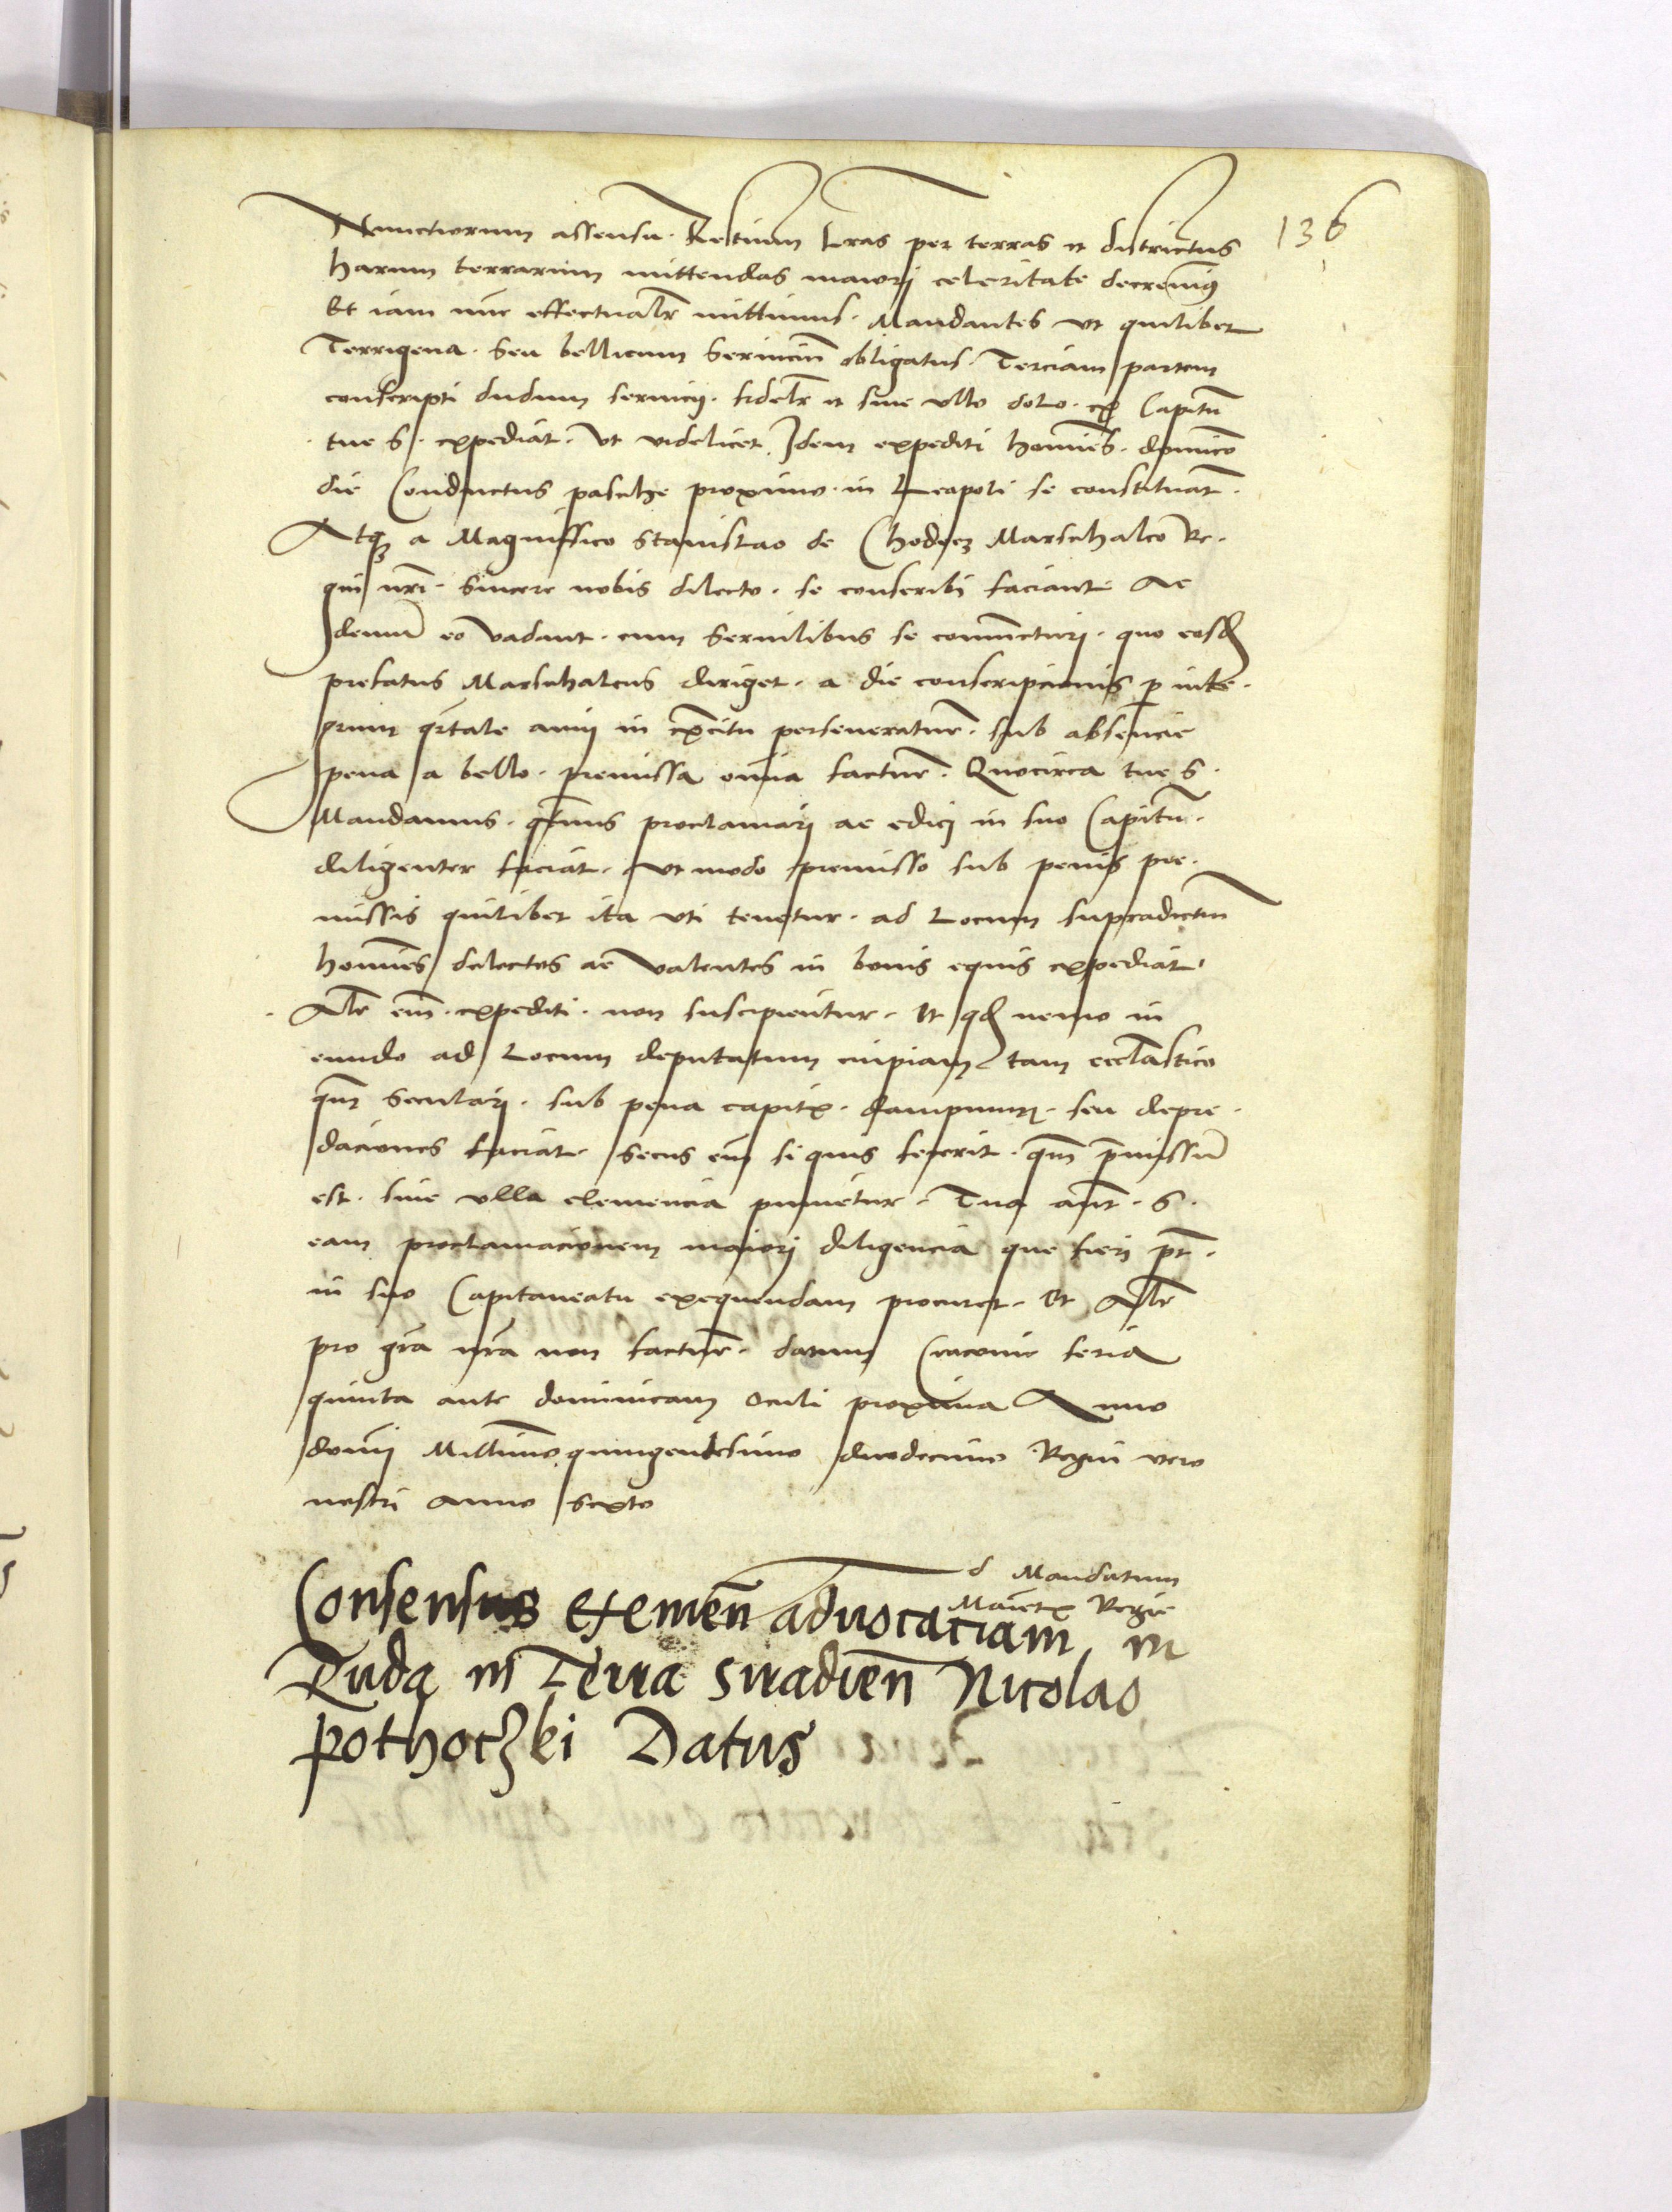 136
Nunctiorum assensu. Restium Lras per terras et districtus
harum terrarum mittendas maiori celeritate decrevimus
Et iam nunc effectualr mittimus. Mandantes vt quilibet
Terrigena. Seu bellicum Seruicium obligatus. Terciam partem
conscripti dudum seruicij. fidelr et sine vllo dolo. ex Capitu
tue S. expediat. Vt videlicet Idem expediti homines. dominico
die Conductus pasche proximo in Leopoli se constituat.
Atque a Magnifico Stanislao de Chodecz Marschalco Re-
gni nri. sincere nobis dilecto. se conscribi faciant Ac
Idemum eo vadant. cum Seruilibus se coniuncturi. quo eosd
prefatus Marschalcus diriget. a die conscripcionis p inte-
grum qrtale anni in exercitu perseueratur. sub absencie
pena a bello. premissa omnia factur. Quocirca tue S.
Mandamus. qtinus proclamari ac edici in suo Capitu.
diligenter faciat. vt modo premisso sub penis pre-
missis quilibet ita vti tenetur. ad Locum supradictum
homines delectos ac valentes in bonis equis expediat.
Alr em. expediti. non suscipientur. Et qd nemo in
eundo ad Locum deputatum cuipiam tam ecclastico
qm Seculari. sub pena capitis. dampnum. seu depre-
daciones faciat. secus em si quis fecerit. qm premissum
est. sine vlla clemencia punietur. Tua aut. S.
eam proclamacionem maiori diligencia que fieri pt.
in suo Capitaneatu exequendam procuret. Et Alr
pro gra nra non factur. datum Cracouie feria
quinta ante dominicam Oculi proxima Anno
domi Millimo quingentesimo duodecimo Regni vero
nostri anno sexto
d Mandatum
Maiestatis Regie
Consensus exemen aduocaciam in
Ruda in Terra Siradien Nicolao
Pothoczki Datus